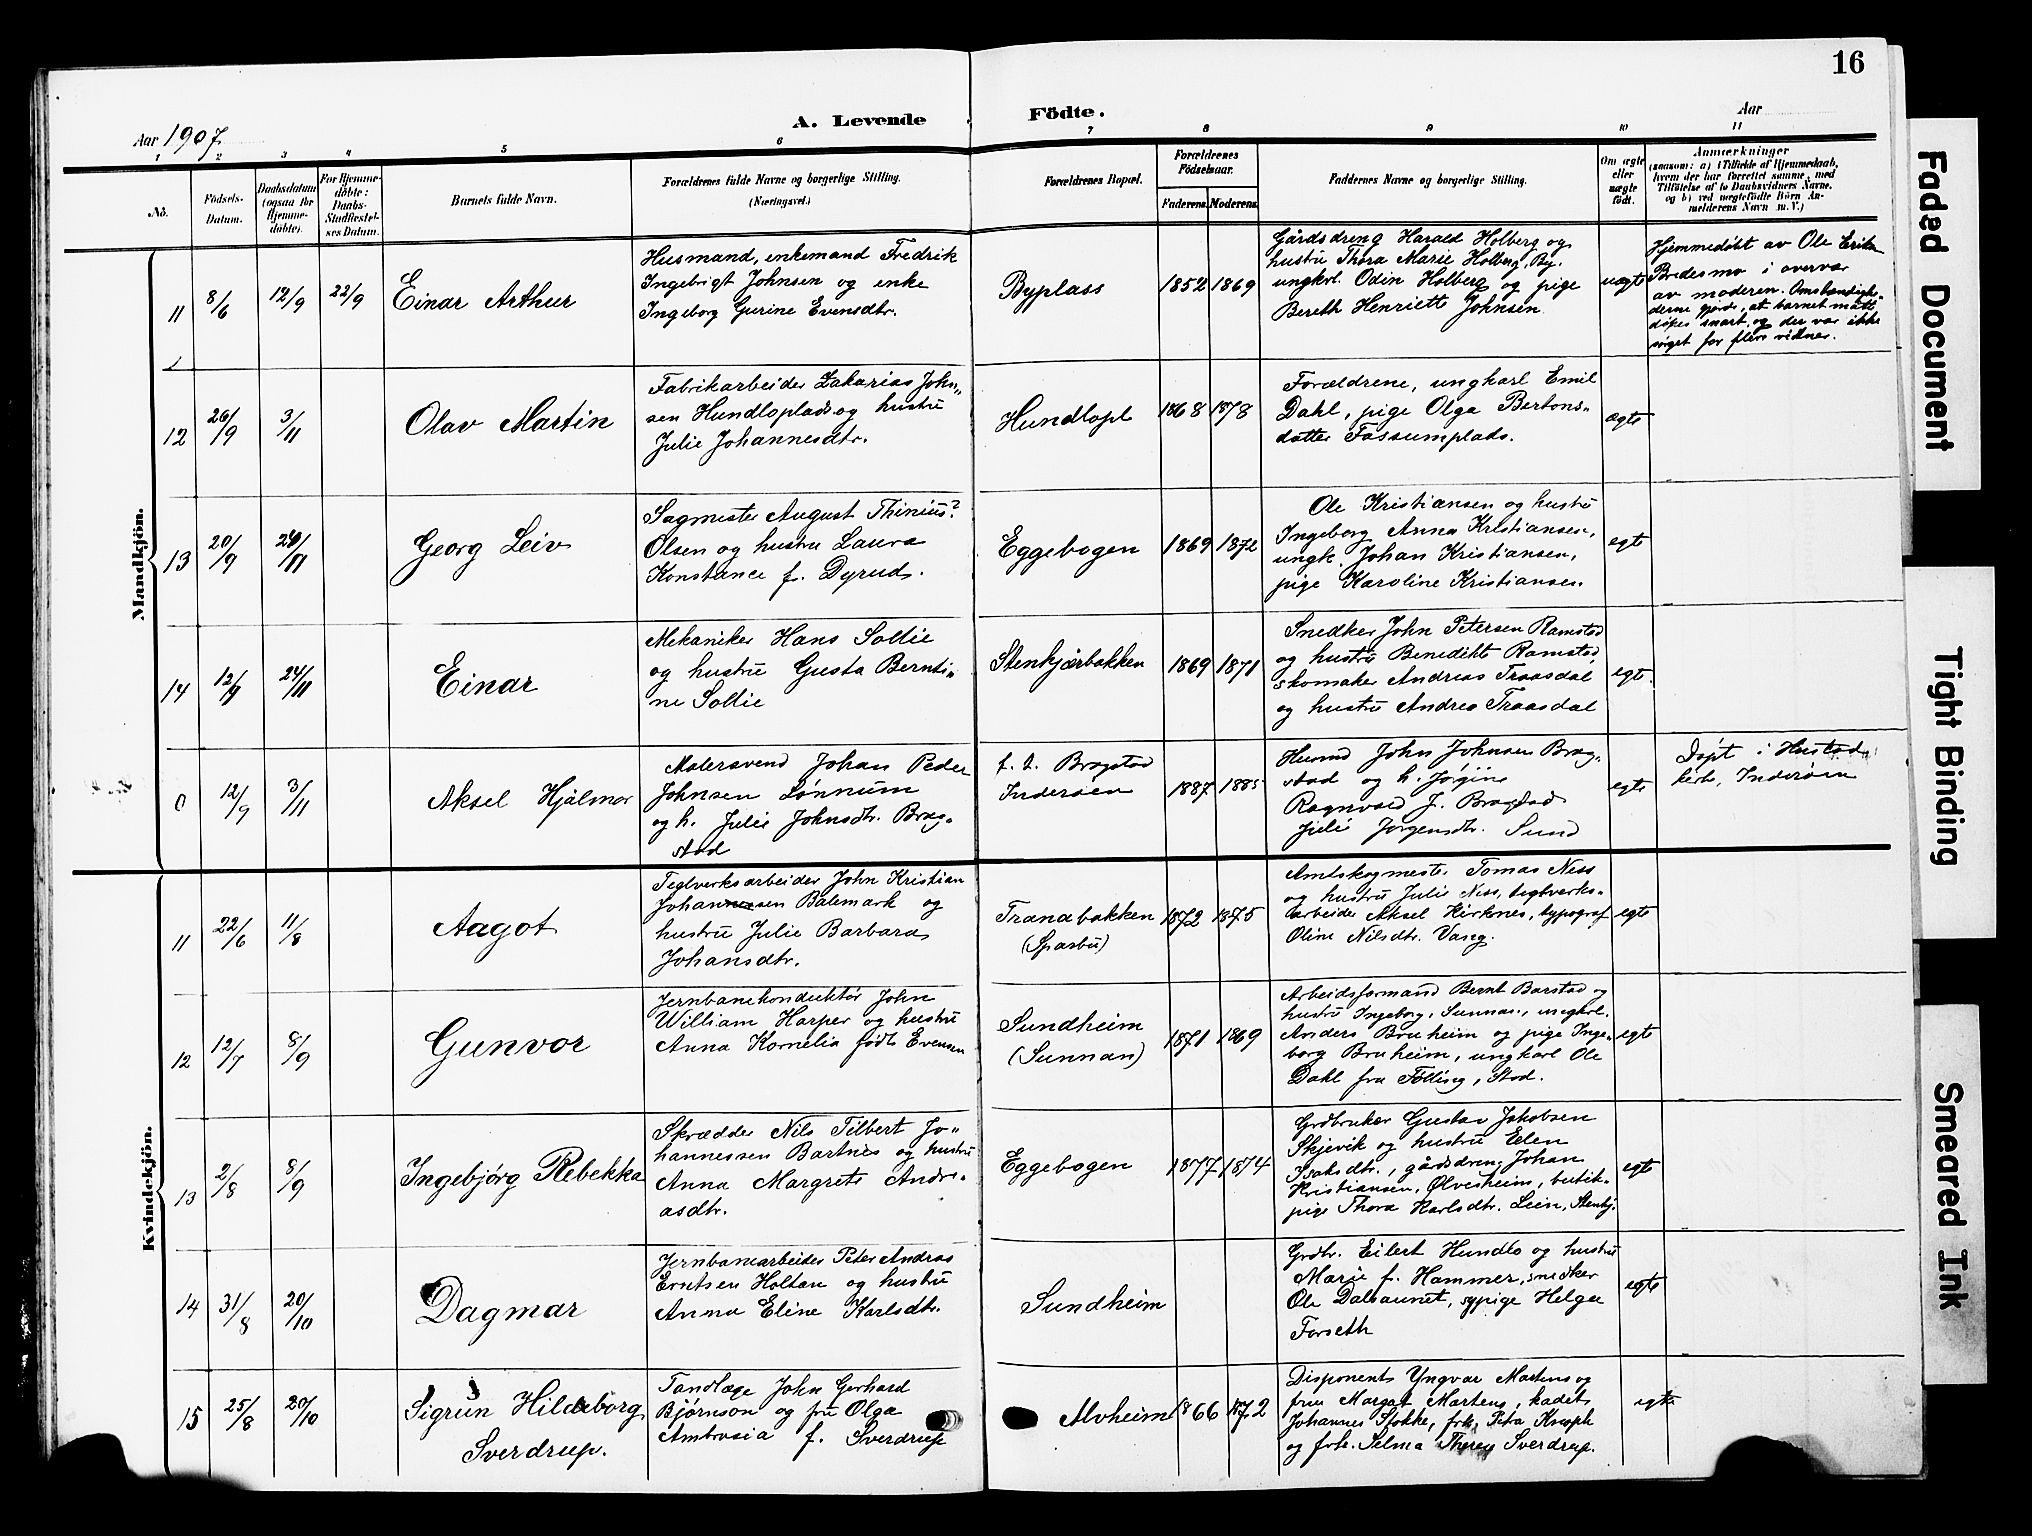 16
Aar 1907
A. Levende Födte.
Aar
1 2 3 4 5 6 7 8 9 10 11
No.
Födsels-
Datum.
Daabsdatum
(ogsaa for
Hjemme-
døbte).
For Hjemme-
döbte:
Daabs-
Stadfæstel-
ses Datum.
Barnets fulde Navn.
Forældrenes fulde Navne og borgerlige Stilling.
(Næringsvei.)
Forældrenes Bopæl.
Forældrenes
Födselsaar.
Faderens. Moderens.
Faddernes Navne og borgerlige Stilling.
Om ægte
eller
uægte
født.
Anmærkninger
(saasom: a) i Tilfælde af Hjemmedaab,
hvem der har forrettet samme, med
Tilföielse af to Daabsvidners Navne,
og b) ved uægtefödte Börn An-
melderens Navn m. V.)
Mandkjön.
11 8/6 12/9 22/9 Einar Arthur
Husmand, enkemand Fredrik
Ingebrigt Johnsen og enke
Ingeborg Gurine Evensdtr.
Byplass 1852 1869
Gårdsdreng Harald Holberg og
hustru Thora Marie Holberg, By.
ungkrl. Odin Holberg og pige
Bereth Henriette Johnsen
uægte
Hjemmedøbt av Ole Erik
Bredesmo i overvær
av moderen. Omstændighe-
derne gjorde, at barnet måtte
døpes snart, og der var ikke
søget for flere vidner.
12 26/9 3/11 Olav Martin
Fabrikarbeider Zakarias John-
sen Hundloplads og hustru
Julie Johannesdtr.
Hundlopl 1868 1878
Forældrene, ungkarl Emil
Dahl, pige Olga Bertons-
datter Fossumplads.
ægte
13 20/9 /11 Georg Leiv
Sagmester August Thinius?
Olsen og hustru Laura
Konstance f. Dyrud.
Eggebogen 1869 1872
Ole Kristiansen og hustru
Ingeborg Anna Kristiansen,
ungk. Johan Kristiansen,
pige Karoline Kristiansen.
egte
14 12/9 24/11 Einar
Mekaniker Hans Sollie
og hustru Gusta Bernti-
ne Sollie
Stenkjærbakken 1869 1871
Snedker John Petersen Ramstad
og hustru Benedikte Ramstad,
skomaker Andreas Traasdal
og hustru Andrea Traasdal
egte.
0 12/9 3/11 Aksel Hjalmar
Malersvend Johan Peder
Johnsen Lønnum
og h. Julie Johnsdtr. Brag-
stad
f. t. Bragstad
Inderøen 1887 1885
Husmd John Johnsen Brag-
stad og h. Jørgine
Ragnvald J. Bragstad
Julie Jørgensdtr. Sund
egte
Døpt i Hustad
kirke, Inderøen
Kvindekjön.
11 22/6 11/8 Aagot
Teglverksarbeider John Kristian
Johannessen Balemark og
hustru Julie Barbara
Johansdtr.
Tranabakken
(Sparbu) 1872 1875
Amtskogmester Tomas Ness
og hustru Julie Ness, teglverks-
arbeider Aksel Kirknes, typograf
Oline Nilsdtr. Vang.
egte
12 12/7 8/9 Gunvor
Jernbanekonduktør John
William Harper og hustru
Anna Kornelia født Evensen
Sundheim
(Sunnan) 1871 1869
Arbeidsformand Bernt Barstad og
hustru Ingeborg, Sunnan, ungkrl.
Anders Bruheim og pige Inge-
borg Bruheim, ungkarl Ole
Dahl fra Følling, Stod.
egte
13 2/8 8/9 Ingebjørg Rebekka
Skrædder Nils Tilbert Jo-
hannessen Bartnes og hustru
Anna Margrete Andre-
asdtr.
Eggebogen 1877 1874
Grdbruker Gustav Jakobsen
Skjevik og hustru Elen
Isaksdtr., gårdsdreng Johan
Kristiansen, Ølvesheim, butik-
pige Thora Karlsdtr. Lein, Stenkj.
egte
14 31/8 20/10 Dagmar
Jernbanearbeider Peter Andreas
Erntsen Holtan og hustru
Anna Eline Karlsdtr.
Sundheim
Grdbr. Eilert Hundlo og hustru
Marie f. Hammer, snedker
Ole Dalsaunet, sypige Helga
Forseth
egte
15 25/8 20/10 Sigrun Hildeborg
Sverdrup.
Tandlæge John Gerhard
Bjørnson og fru Olga
Ambrosia f. Sverdrup
Alvheim 1866 1872
Disponent Yngvar Martens og
frue Margat Martens, kadet
Johannes Stokke, frk. Petra Knoph
og frk. Selma Theres Sverdrup.
egte
Faded Document
Tight Binding
Smeared Ink